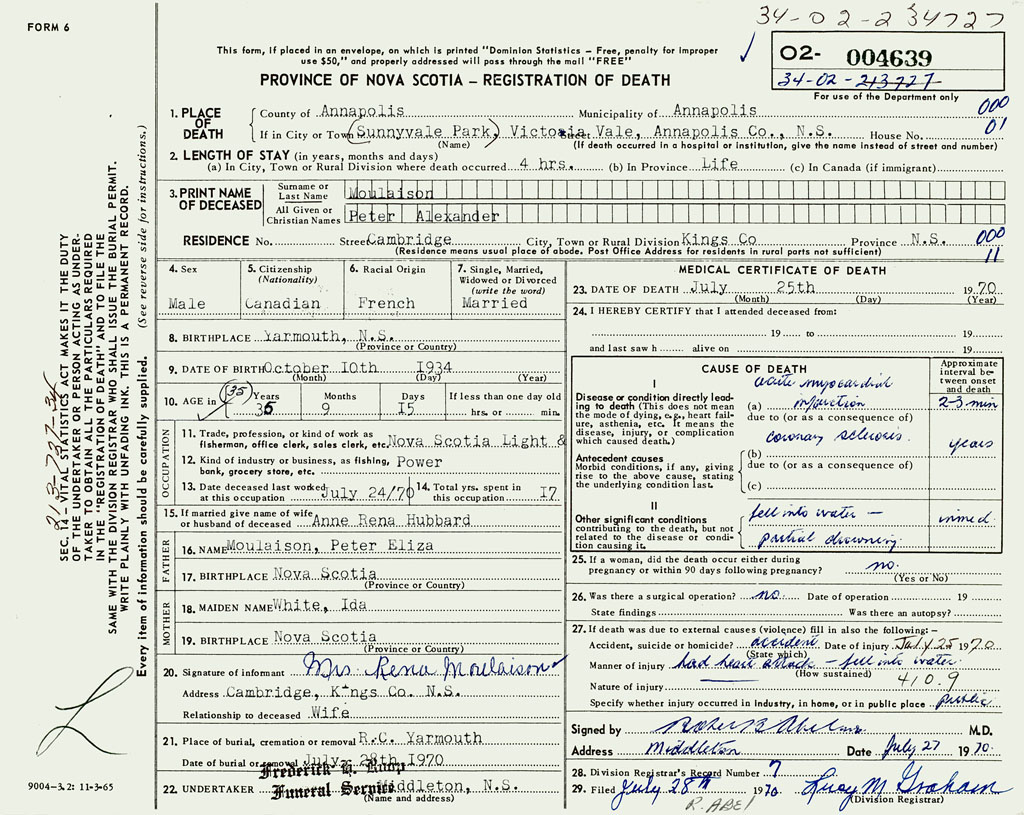 FORM 6
34-02-2 34727
This form, if placed in an envelope, on which is printed "Dominion Statistics – Free, penalty for improper
use $50," and properly addressed will pass through the mail "FREE"
PROVINCE OF NOVA SCOTIA – REGISTRATION OF DEATH
02- 004639
34-02-213727
For use of the Department only
1. PLACE OF DEATH
County of Annapolis Municipality of Annapolis 000
If in City or Town (Sunnyvale Park) Victoria Vale, Annapolis Co., N.S. House No. 01
(Name) Street (If death occurred in a hospital or institution, give the name instead of street and number)
2. LENGTH OF STAY (in years, months and days)
(a) In City, Town or Rural Division where death occurred 4 hrs. (b) In Province Life (c) In Canada (if immigrant)
3. PRINT NAME OF DECEASED
Surname or Last Name Moulaison
All Given or Christian Names Peter Alexander
RESIDENCE No. Street Cambridge City, Town or Rural Division Kings Co Province N.S. 000
(Residence means usual place of abode. Post Office Address for residents in rural parts not sufficient) 11
4. Sex Male
5. Citizenship (Nationality) Canadian
6. Racial Origin French
7. Single, Married, Widowed or Divorced (write the word) Married
8. BIRTHPLACE Yarmouth, N.S.
(Province or Country)
9. DATE OF BIRTH October 10th 1934
(Month) (Day) (Year)
10. AGE in (35) Years 35 Months 9 Days 15 If less than one day old hrs. or min.
OCCUPATION
11. Trade, profession, or kind of work as
fisherman, office clerk, sales clerk, etc. Nova Scotia Light &
12. Kind of industry or business, as fishing,
bank, grocery store, etc. Power
13. Date deceased last worked
at this occupation July 24/70
14. Total yrs. spent in
this occupation 17
15. If married give name of wife
or husband of deceased Anne Rena Hubbard
FATHER
16. NAME Moulaison, Peter Eliza
17. BIRTHPLACE Nova Scotia
(Province or Country)
MOTHER
18. MAIDEN NAME White, Ida
19. BIRTHPLACE Nova Scotia
(Province or Country)
20. Signature of informant Mrs. Rena Moulaison
Address Cambridge, Kings Co. N.S.
Relationship to deceased Wife
21. Place of burial, cremation or removal R.C. Yarmouth
Date of burial or removal July 28th 1970
Frederick H. Roop
Funeral Service
22. UNDERTAKER Middleton, N.S.
(Name and address)
MEDICAL CERTIFICATE OF DEATH
23. DATE OF DEATH July 25th 1970
(Month) (Day) (Year)
24. I HEREBY CERTIFY that I attended deceased from:
19 to 19
and last saw h alive on 19
CAUSE OF DEATH
Approximate interval between onset and death
I
Disease or condition directly leading to death (This does not
mean the mode of dying, e.g., heart failure, asthenia, etc. It means the
disease, injury, or complication
which caused death.)
acute myocardial
(a) infarction 2-3 min
due to (or as a consequence of)
coronary sclerosis. years
Antecedent causes
Morbid conditions, if any, giving
rise to the above cause, stating
the underlying condition last.
(b)
due to (or as a consequence of)
(c)
II
Other significant conditions
contributing to the death, but not
related to the disease or condition causing it.
fell into water – immed
partial drowning.
25. If a woman, did the death occur either during
pregnancy or within 90 days following pregnancy? no.
(Yes or No)
26. Was there a surgical operation? no. Date of operation 19
State findings Was there an autopsy?
27. If death was due to external causes (violence) fill in also the following: –
Accident, suicide or homicide? accident Date of injury July 25 1970
(State which)
Manner of injury had heart attack – fell into water.
(How sustained)
Nature of injury 410.9
Specify whether injury occurred in industry, in home, or in public place public
Signed by M.D.
Address Middleton Date July 27 1970
28. Division Registrar's Record Number 7
29. Filed July 28th 1970 Lucy M Graham
(Division Registrar)
R. ABEL
SEC. 14 – VITAL STATISTICS ACT MAKES IT THE DUTY
OF THE UNDERTAKER OR PERSON ACTING AS UNDERTAKER TO OBTAIN ALL THE PARTICULARS REQUIRED
IN THE "REGISTRATION OF DEATH" AND TO FILE THE
SAME WITH THE DIVISION REGISTRAR WHO SHALL ISSUE THE BURIAL PERMIT.
WRITE PLAINLY WITH UNFADING INK. THIS IS A PERMANENT RECORD.
Every item of information should be carefully supplied. (See reverse side for instructions.)
9004–3.2: 11-3-65